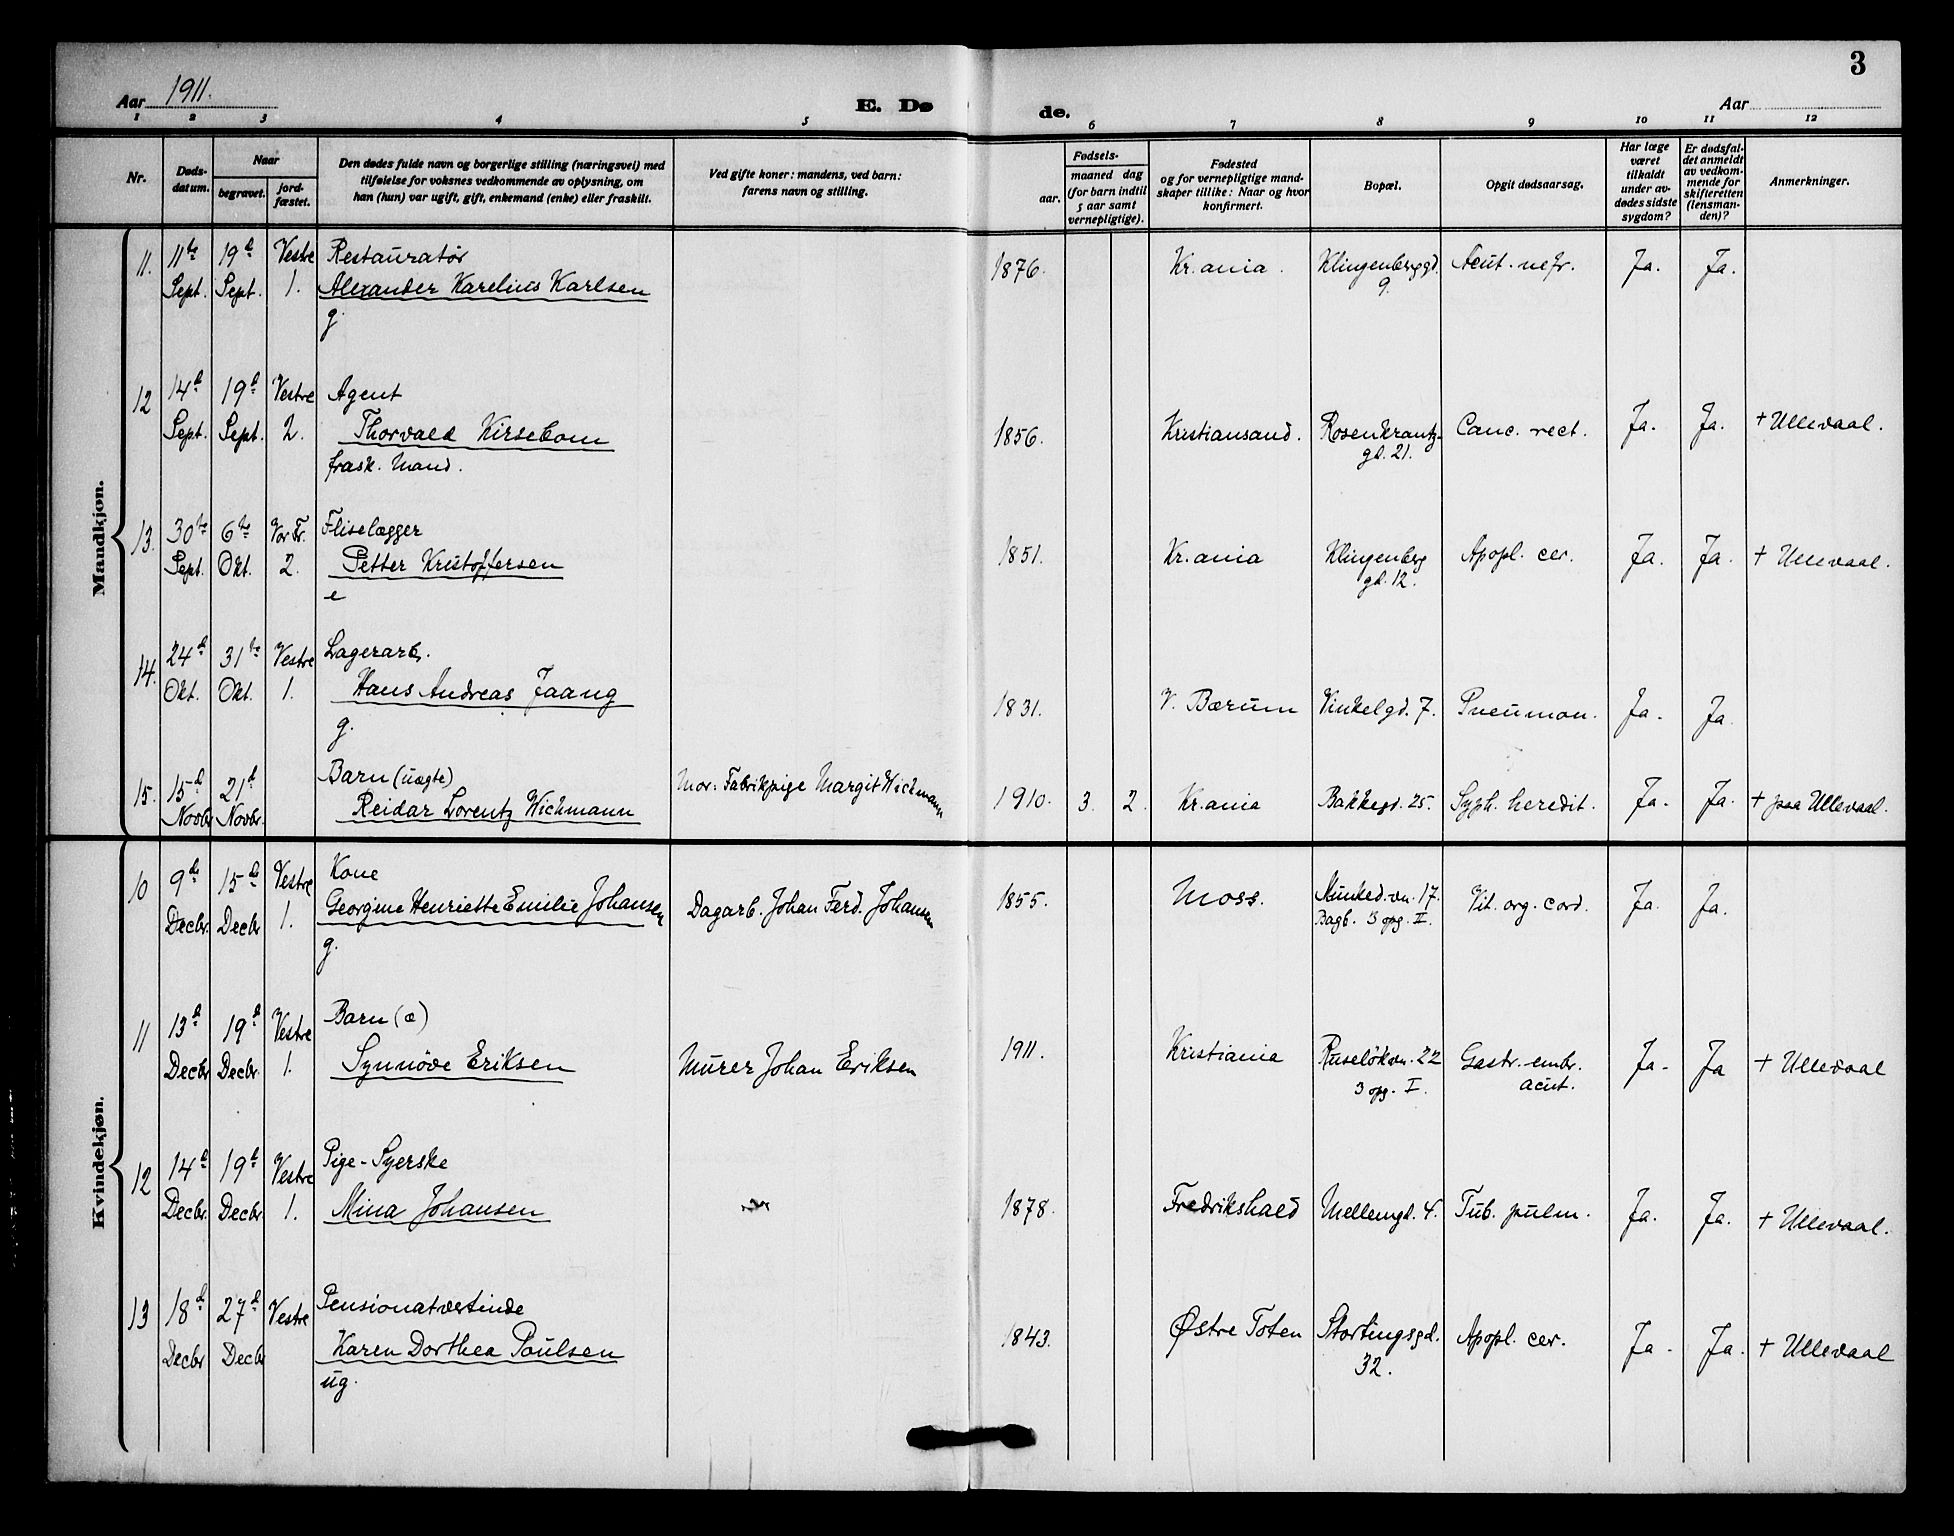 3
Aar 1911.
E. Dø
de.
Aar
1 2 3 4 5 6 7 8 9 10 11 12
Nr.
Døds-
datum.
Naar
begravet.
jord-
fæstet.
Den dødes fulde navn og borgerlige stilling (næringsvei) med
tilføielse for voksnes vedkommende av oplysning, om
han (hun) var ugift, gift, enkemand (enke) eller fraskilt.
Ved gifte koner: mandens, ved barn:
farens navn og stilling.
Fødsels-
aar.
maaned dag
(for barn indtil
5 aar samt
vernepligtige).
Fødested
og for vernepligtige mand-
skaper tillike: Naar og hvor
konfirmert.
Bopæl.
Opgit dødsaarsag.
Har læge
været
tilkaldt
under av-
dødes sidste
sygdom?
Er dødsfal-
det anmeldt
av vedkom-
mende for
skifteretten
(lensman-
den)?
Anmerkninger.
Mandkjøn.
11. 11te 19d Vestre Restauratør
Sept. Sept. 1. Alexander Karelius Karlsen 1876. Kr.ania. Klingenberggd. Acut. nefr. Ja. Ja.
g. 9.
12 14d 19d Vestre Agent
Sept. Sept. 2. Thorvald Kirsebom 1856. Kristiansand. Rosenkrantz- Canc. rect. Ja. Ja. + Ullevaal.
frask. Mand. gd. 21.
13. 30te 6te Vor Fr. Fliselægger
Sept. Okt. 2. Petter Kristoffersen 1851. Kr.ania Klingenberg Apopl. cer. Ja. Ja. + Ullevaal.
e gd. 12.
14. 24d 31te Vestre Lagerarb.
Okt. Okt. 1. Hans Andreas Jaang 1831. V. Bærum Vinkelgd. 7. Pneumon. Ja. Ja.
g.
15. 15d 21d Barn (uægte) Mor: Fabrikpige Margit Wichmann
Novbr Novbr. Reidar Lorentz Wichmann 1910. 3. 2. Kr.ania Bakkegd. 25. Syph. heredit. Ja. Ja. + paa Ullevaal.
Kvindekjøn.
10 9de 15de Vestre Kone
Decbr. Decbr 1. Georgine Henriette Emilie Johansen Dagarb. Johan Ferd. Johansen 1855. Moss. Munked.vn. 17. Vit. org. cord. Ja. Ja.
g. Bagb. 3 opg. II.
11 13d 19d Vestre Barn (æ)
Decbr Decbr. 1. Synnöve Eriksen Murer Johan Eriksen 1911. Kristiania Ruselökvn. 22 Gastr.-embr. Ja. Ja + Ullevaal
3 opg. I. acut.
12 14d 19d Vestre Pige - Syerske
Decbr. Decbr 1. Mina Johansen 1878. Fredrikshald Mellemgd. 4. Tub. pulm. Ja. Ja. + Ullevaal.
13 18d 27d Vestre Pensionatvertinde
Decbr Decbr Karen Dorthea Paulsen 1843. Østre Toten Stortingsgd. Apopl. cer. Ja. Ja. + Ullevaal
ug. 32.